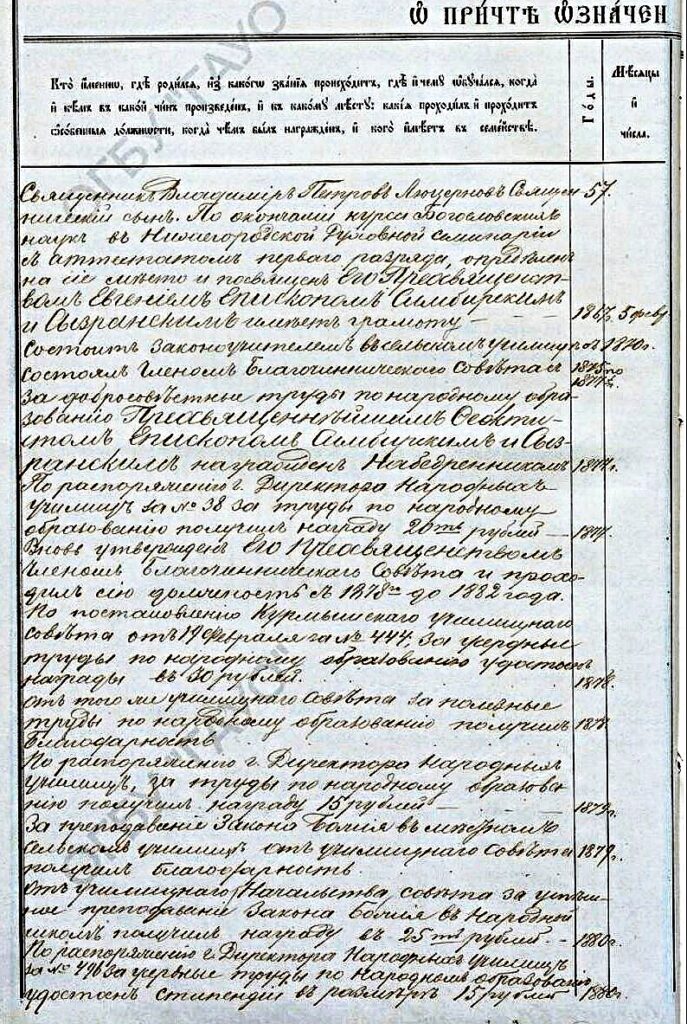 Ѡ ПРИЧТѢ ѠЗНАЧЕН
Кто именно, гдѣ родился, изъ какогѡ званїя происходитъ, гдѣ и чему ѡбучался, когда
и кѣмъ въ какой чинъ произведенъ, и къ какому мѣсту: какїя проходилъ и проходитъ
ѡсобенныя должности, когда чѣмъ былъ награжденъ, и кого имѣетъ въ семействѣ.
Гѡды.
Мѣсяцы
и
числа.
Священникъ Владимiръ Петровъ Люцерновъ Священ 57.
ническiй сынъ. По окончанiи курса Богословскихъ
наукъ въ Нижегородской Духовной семинарiи
съ аттестатомъ перваго разряда, опредѣленъ
на сiе мѣсто и посвященъ Его Преосвященст-
вомъ Евгенiемъ Епископомъ Симбирскимъ
и Сызранскимъ имѣетъ грамоту 1867г. 5 февр
Состоитъ законоучителемъ въ сельскомъ училищѣ съ 1870г.
состоялъ членомъ Благочинническаго Совѣта съ 1875 по
1877г.
За добросовѣстные труды по народному обра-
зованiю Преосвященнѣйшимъ Ѳеокти-
стомъ Епископомъ Симбирскимъ и Сыз-
ранскимъ награжденъ Набедренникомъ 1877г.
По распоряженiю г. Директора Народныхъ
училищъ за № 38 за труды по народному
образованiю получилъ награду 20ть рублей 1877.
Вновь утвержденъ Его Преосвященствомъ
членомъ Благочинническаго Совѣта и прохо-
дилъ сiю должность съ 1878го до 1882 года.
По постановленiю Курмышскаго училищнаго
совѣта отъ 19 Февраля за № 444. За усердные
труды по народному образованiю удостоенъ
награды въ 30 рублей. 1878.
отъ того же училищнаго Совѣта за полезные
труды по народному образованiю получилъ 1878.
благодарность
По распоряженiю г. Директора Народныхъ
училищъ, за труды по народному образова
нiю получилъ награду 15 рублей 1879г.
За преподаванiе Закона Божiя въ мѣстномъ
сельскомъ училищѣ отъ училищнаго Совѣта 1879г.
получилъ благодарность.
отъ училищнаго Начальства совѣта за успѣш-
ное преподаванiе Закона Божiя въ Народной
школѣ получилъ награду въ 25ть рублей. 1880г.
По распоряженiю г. Директора Народныхъ училищъ
за № 496 За усердные труды по Народному образованiю
удостоенъ стипендiи въ размѣрѣ 15 рублей 1880г.
ОГБУ "ГАУО"
ОГБУ "ГАУО"